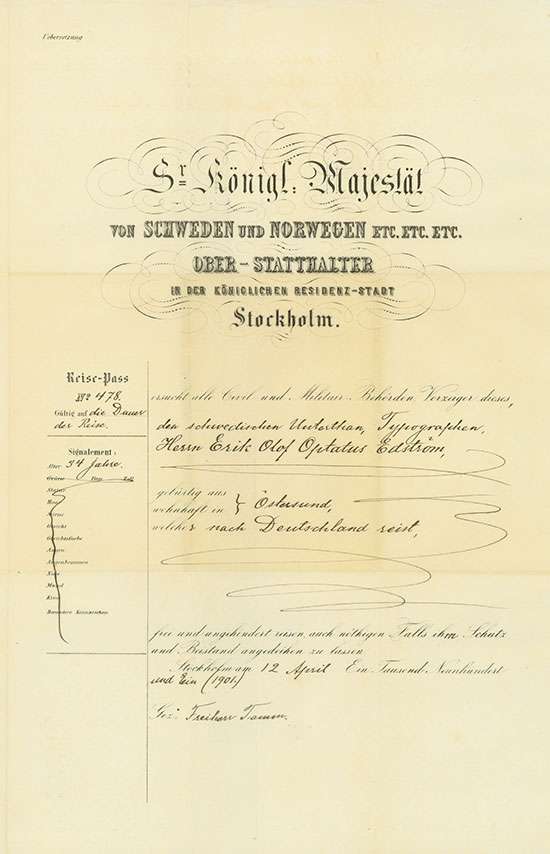 Uebersetzung
Sr. Königl: Majestät
VON SCHWEDEN UND NORWEGEN ETC. ETC. ETC.
OBER-STATTHALTER
IN DER KÖNIGLICHEN RESIDENZ-STADT
Stockholm.
Reise-Pass
No 478.
Gültig auf die Dauer
der Reise.
Signalement:
Alter 34 Jahre.
Grösse
Statur
Haar
Stirne
Gesicht
Gesichtsfarbe
Augen
Augenbraunen
Nase
Mund
Kinn
Besondere Kennzeichen
ersucht alle Civil und Militair-Behörden Vorzeiger dieses,
den schwedischen Unterthan, Typographen,
Herrn Erik Olof Optatus Edström,
gebürtig aus
wohnhaft in } Östersund,
welcher nach Deutschland reist,
frei und ungehindert reisen, auch nöthigen Falls ihm Schutz
und Beistand angedeihen zu lassen.
Stockholm am 12 April Ein Tausend Neunhundert
und Ein (1901.)
Gez: Freiherr Tamm.